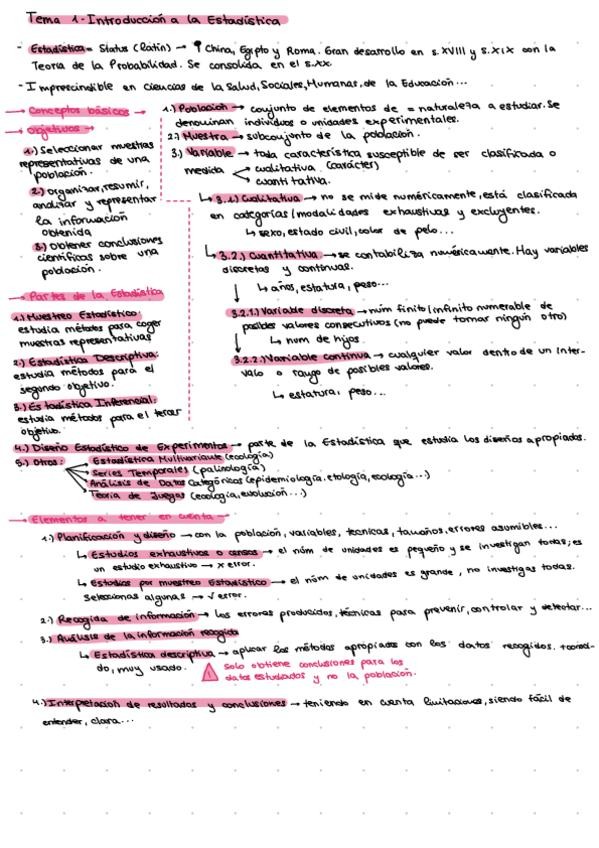 Tema 1- Introducción a la Estadística
- Estadística = Status (latín) → China, Egipto y Roma. Gran desarrollo en s. XVIII y s. XIX con la
Teoría de la Probabilidad. Se consolida en el s.XX.
- Imprescindible en ciencias de la Salud, Sociales, Humanas, de la Educación...
→ Conceptos básicos →
→ Objetivos →
1.) Seleccionar muestras
representativas de una
población.
2.) Organizar, resumir,
analizar y representar
la información
obtenida
3.) Obtener conclusiones
científicas sobre una
población.
1.) Población → conjunto de elementos de = naturaleza a estudiar. Se
denominan individuos o unidades experimentales.
2.) Muestra → subconjunto de la población.
3.) Variable → toda característica susceptible de ser clasificada o
medida
cualitativa (carácter)
cuantitativa.
↳ 3.1.) Cualitativa → no se mide numéricamente, está clasificada
en categorías / modalidades exhaustivas y excluyentes.
↳ sexo, estado civil, color de pelo...
↳ 3.2.) Cuantitativa → se contabiliza numéricamente. Hay variables
discretas y continuas.
↳ años, estatura, peso...
3.2.1.) Variable discreta → núm finito / infinito numerable de
posibles valores consecutivos (no puede tomar ningún otro)
↳ num de hijos.
3.2.2.) Variable continua → cualquier valor dentro de un inter-
valo o rango de posibles valores.
↳ estatura, peso...
→ Partes de la Estadística
1.) Muestreo Estadístico:
estudia métodos para coger
muestras representativas
2.) Estadística Descriptiva:
estudia métodos para el
segundo objetivo.
3.) Estadística Inferencial:
estudia métodos para el tercer
objetivo.
4.) Diseño Estadístico de Experimentos → parte de la Estadística que estudia los diseños apropiados.
5.) Otros:
Estadística Multivariante (ecología)
Series Temporales (palinología)
Análisis de Datos Categóricos (epidemiología, etología, ecología...)
Teoría de Juegos (ecología, evolución...)
→ Elementos a tener en cuenta →
1.) Planificación y diseño → con la población, variables, técnicas, tamaños, errores asumibles...
↳ Estudios exhaustivos o censos → el núm de unidades es pequeño y se investigan todas; es
un estudio exhaustivo → x error.
↳ Estudios por muestreo Estadístico → el núm de unidades es grande, no investigas todas.
Seleccionas algunas → √ error.
2.) Recogida de información → los errores producidos, técnicas para prevenir, controlar y detectar...
3.) Análisis de la información recogida
↳ Estadística descriptiva → aplicar los métodos apropiados con los datos recogidos.
do, muy usado.
! Solo obtiene conclusiones para los
datos estudiados y no la población.
4.) Interpretación de resultados y conclusiones → teniendo en cuenta limitaciones, siendo fácil de
entender, clara...